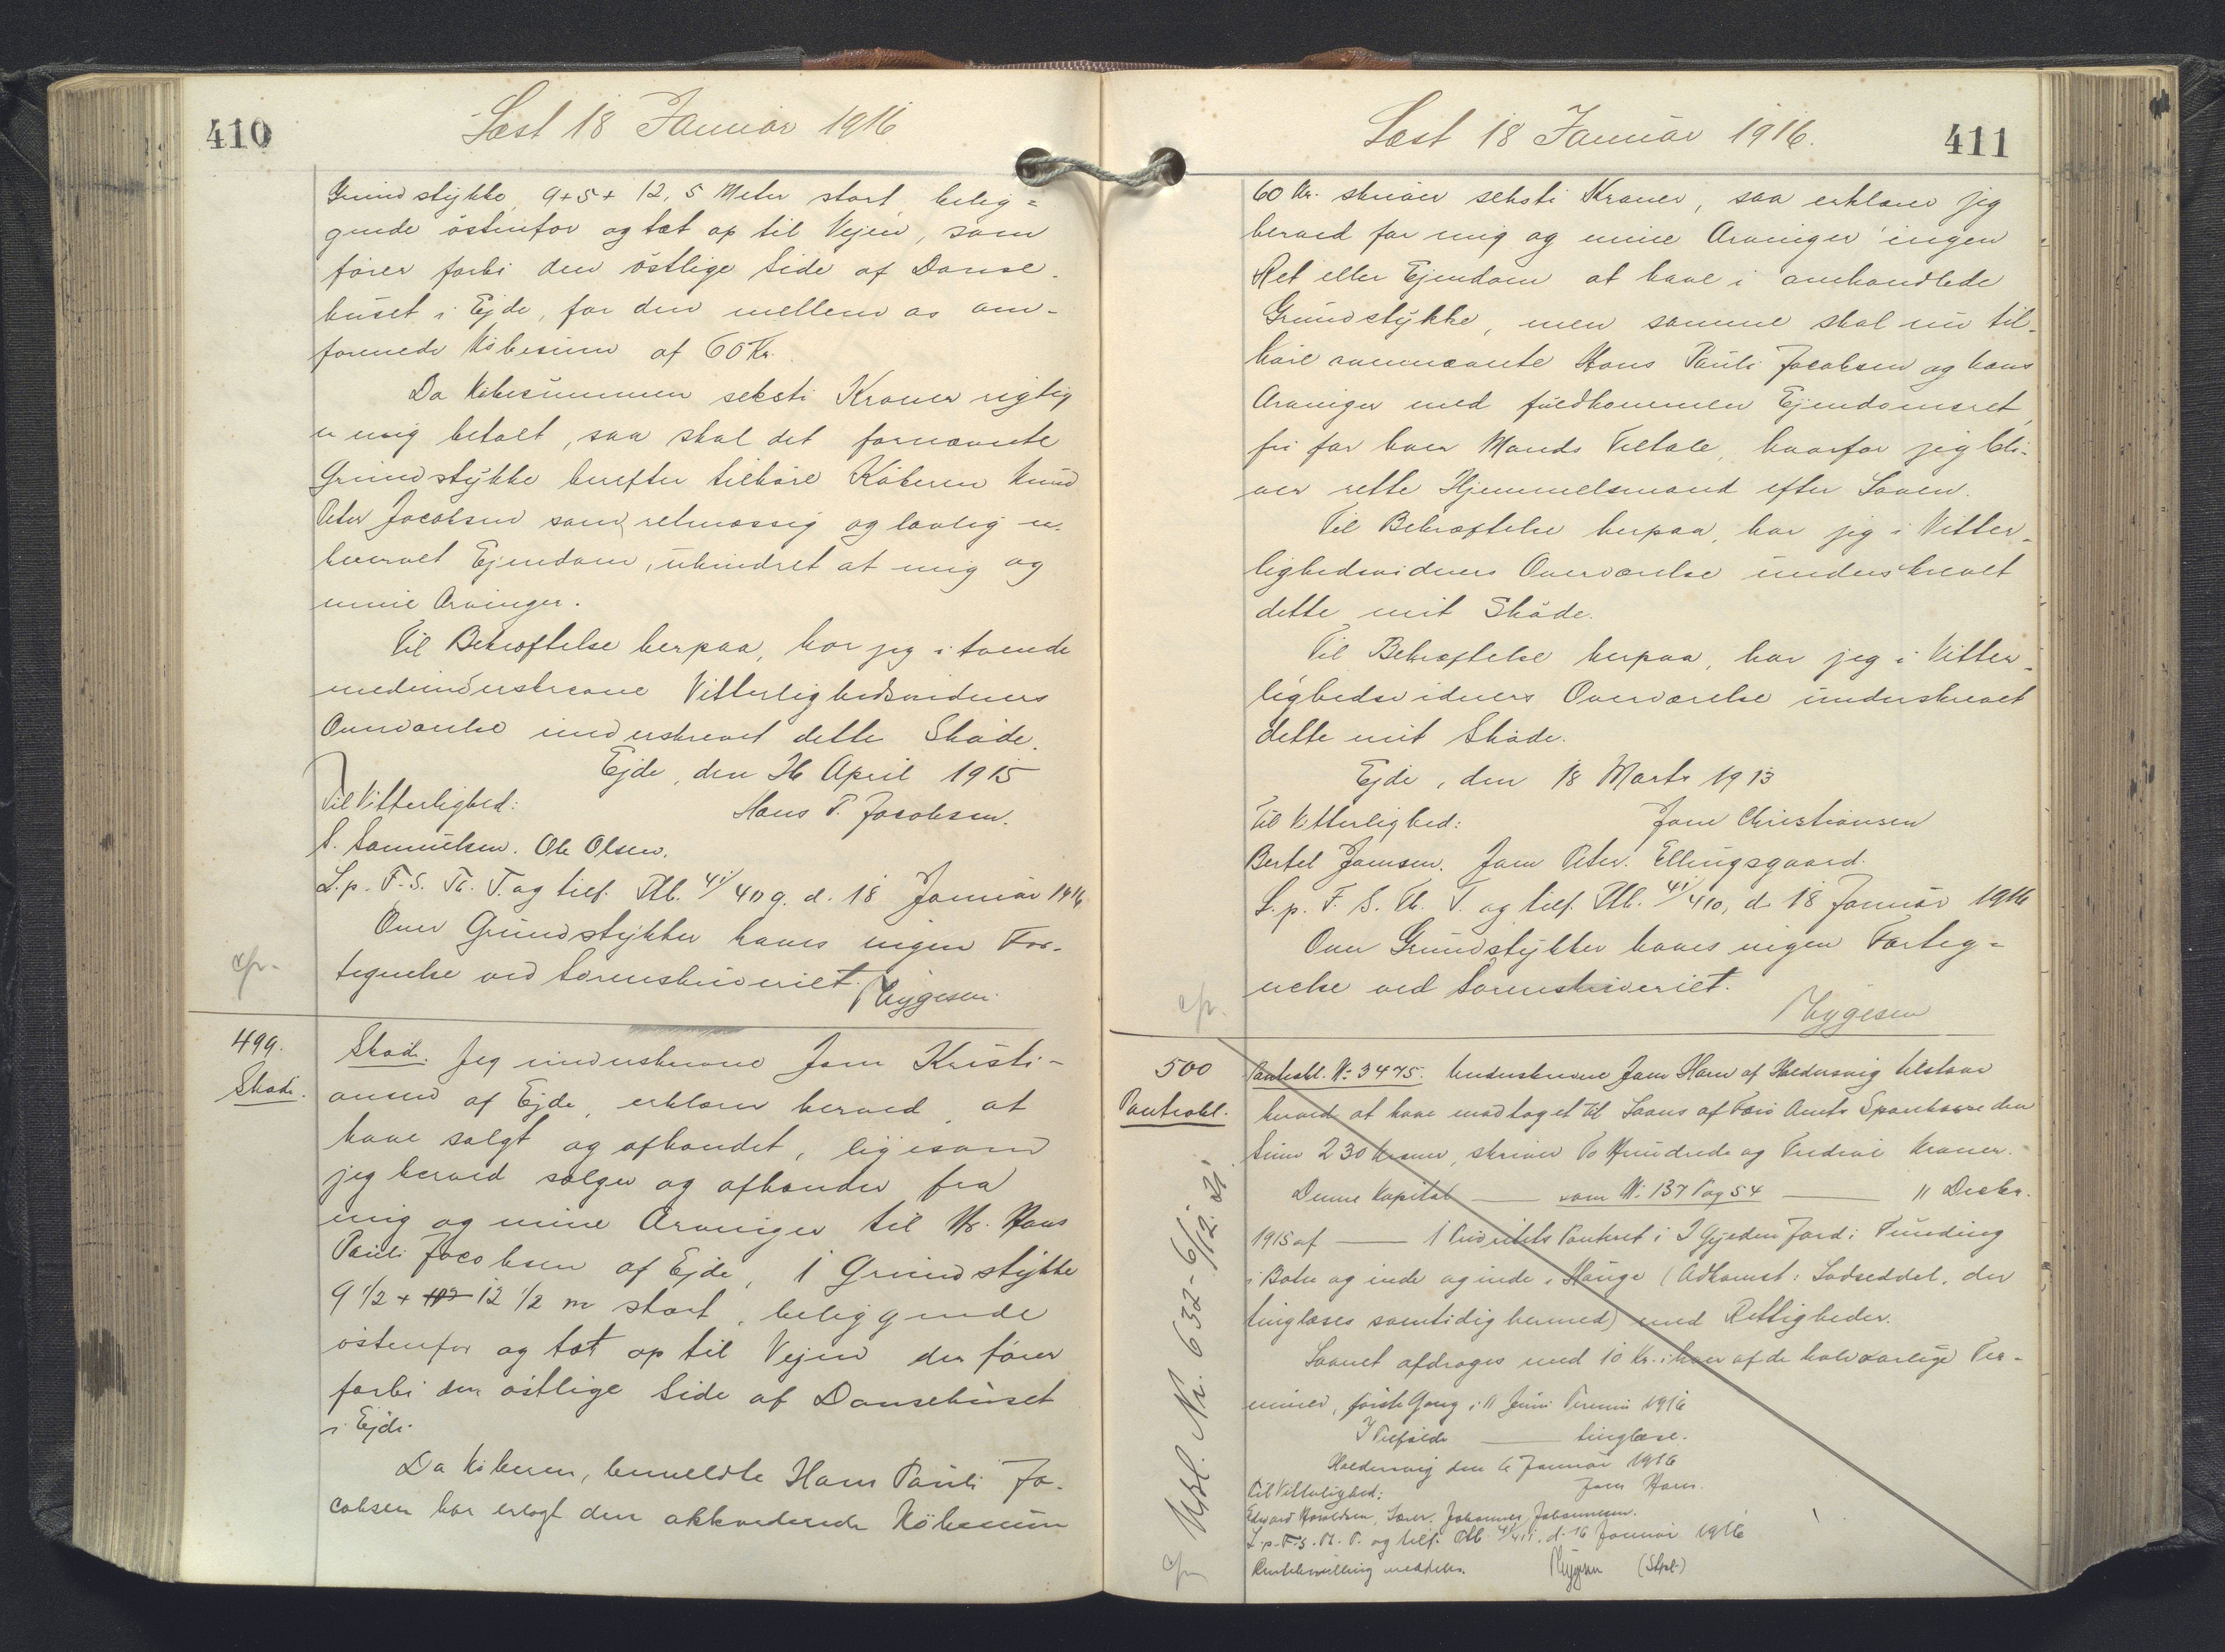 410
Læst 18 Januar 1916
Grundstykke, 9+5+ 12,5 Meter stort, belig=
gende östenfor og tæt op til Vejen, som
fører forbi den östlige Side af Danse-
huset i Ejde, for den mellem os om-
forenede Købesum af 60 Kr.
Da Købesummen seksti Kroner rigtig
er mig betalt, saa skal det fornævnte
Grundstykke herefter tilhöre Köberen Knud
Peter Jacobsen som retmæssig og lovlig er-
hvervet Ejendom, uhindret af mig og
mine Arvinger.
Til Bekræftelse herpaa, har jeg i tvende
medunderskrevne Vitterlighedsvidners
Overværelse underskrevet dette Sköde.
Ejde, den 26 April 1915
Til Vitterlighed:
Hans P. Jacobsen.
S. Samuelsen. Ole Olsen.
L.p. F. S. Th. T. og tilf. Ptb. 41/409. d. 18 Januar 1916
Over Grundstykker haves ingen For-
tegnelse ved Sorenskriveriet.
Thygesen.
cfr.
499.
Sköde.
Sköde. Jeg underskrevne Jom Kristi-
ansen af Ejde, erklærer herved at
have solgt og afhændet, ligesom
jeg herved sælger og afhænder fra
mig og mine Arvinger til Hr. Hans
Pauli Jacobsen af Ejde, 1 Grundstykke
9 1/2 + 12 1/2 m stort, beliggende
östenfor og tæt op til Vejen der fører
forbi den östlige Side af Dansehuset
i Ejde.
Da Köberen, bemeldte Hans Pauli Ja-
cobsen har erlagt den akkorderede Köbesum
411
Læst 18 Januar 1916.
60 Kr. skriver seksti Kroner, saa erklærer jeg
herved for mig og mine Arvinger ingen
Ret eller Ejendom at have i omhandlede
Grundstykke, men samme skal nu til-
höre ovennævnte Hans Pauli Jacobsen og hans
Arvinger med fuldkommen Ejendomsret,
fri for hver Mands Tiltale, hvorfor jeg bli-
ver rette Hjemmelsmand efter Loven.
Til Bekræftelse herpaa, har jeg i Vitter-
lighedsvidners Overværelse underskrevet
dette mit Sköde.
Til Bekræftelse herpaa, har jeg i Vitter-
lighedsvidners Overværelse underskrevet
dette mit Sköde.
Ejde, den 18 Marts 1913
Til Vitterlighed:
Jom Christiansen
Bertel Joensen. Jom Peter. Ellingsgaard.
L.p. F. S. Th. T. og tilf. Ptb. 41/410, d. 18 Januar 1916
Over Grundstykker haves ingen Forteg=
nelse ved Sorenskriveriet.
Thygesen
cfr.
500
Panteobl.
Panteobl. No 3475. Underskrevne Jom Ham af Haldersvig tilstaar
herved at have modtaget til Laans af Færö Amts Sparekasse den
Sum 230 Kroner, skriver To Hundrede og Tredive Kroner.
Denne Kapital — som No 137 Pag 54 — 11 Decbr.
1915 af — 1 Prioritets Panteret i 2 Gylden Jord i Funding
i Bøen og inde og inde i Hauge (Adkomst: Lodseddel, der
tinglæses samtidig hermed) med Rettigheder.
Laanet afdrages med 10 Kr. i hver af de halvaarlige Ter-
miner, første Gang i 11 Juni Termin 1916
I Tilfælde — tinglæse.
Haldersvig den 6 Januar 1916
Til Vitterlighed:
Jom Ham.
Edvard Haraldsen, Johannes Johannesen.
L.p. F. S. Th. T. og tilf. Ptb 41/411, d. 18 Januar 1916
meddeles. Thygesen (Stpl.)
Udsl. Nr. 632 - 6/12. 21.
cfr